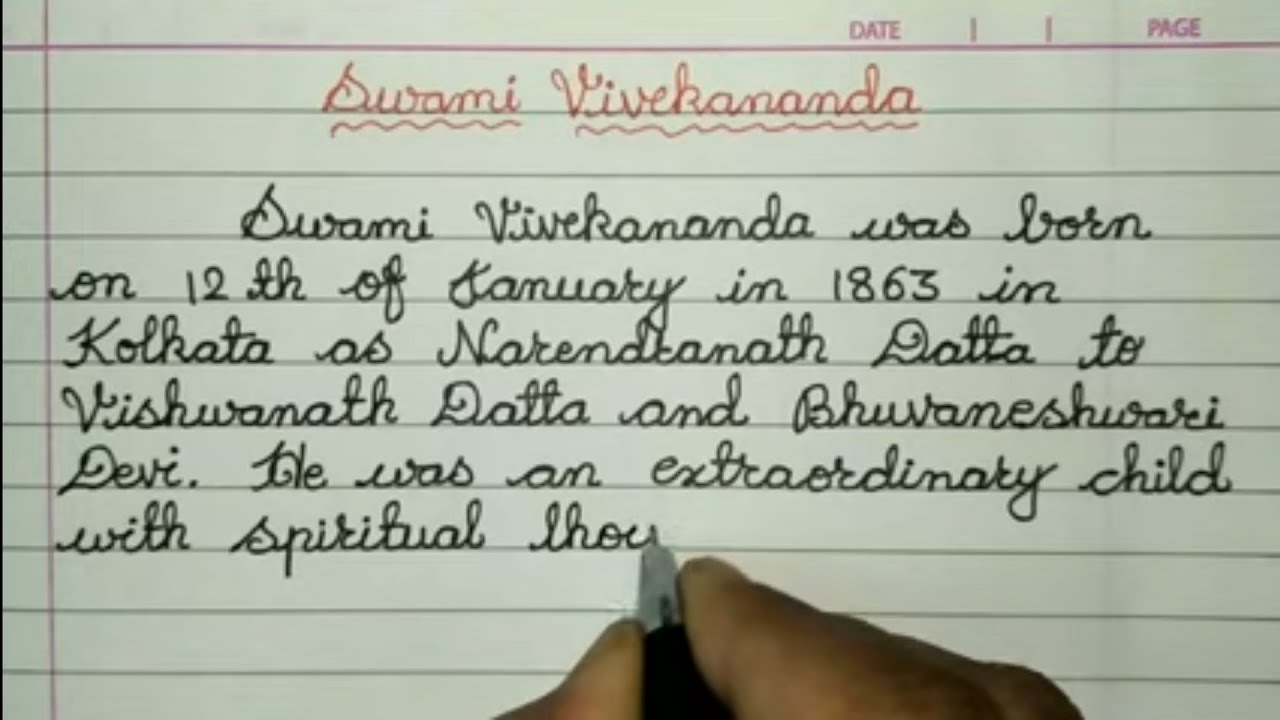 DATE | | PAGE
Swami Vivekananda
Swami Vivekananda was born
on 12 th of January in 1863 in
Kolkata as Narendranath Datta to
Vishwanath Datta and Bhuvaneshwari
Devi. He was an extraordinary child
with spiritual thou